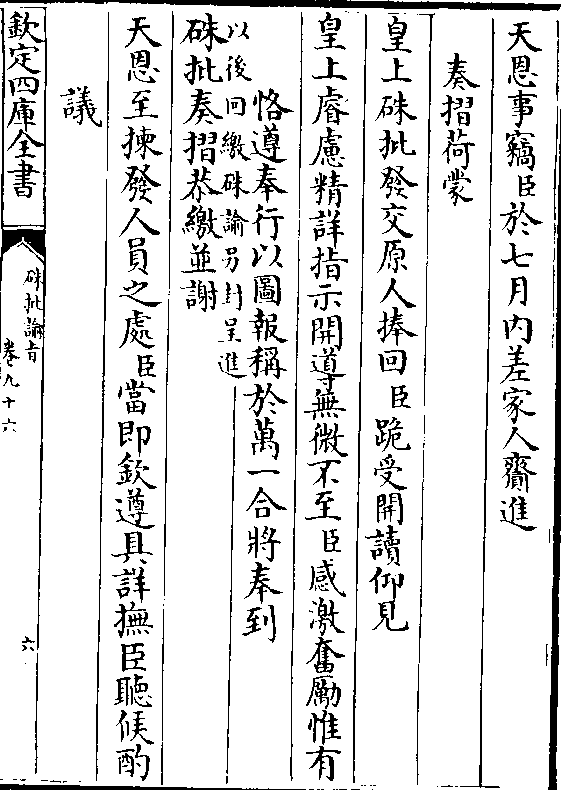 天恩事竊臣於七月內差家人齎進
奏摺荷蒙
皇上硃批發交原人捧回臣跪受開讀仰見
皇上睿慮精詳指示開導無微不至臣感激奮勵惟有
恪遵奉行以圖報稱於萬一合將奉到
以後回繳硃諭另封呈進
硃批奏摺恭繳並謝
天恩至揀發人員之處臣當即欽遵具詳撫臣聽候酌
議
欽定四庫全書
硃批諭旨
卷九十六
六